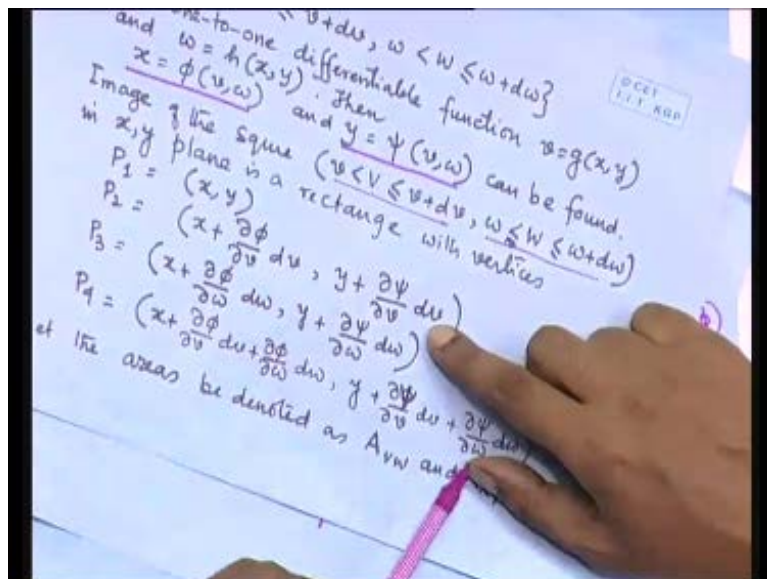 ≤ v+dv, w < W ≤ w+dw}
one-to-one differentiable function v=g(x,y)
and w = h(x,y). Then
x = φ(v,w) and y = ψ(v,w) can be found.
Image of the squre (v<V≤v+dv, w≤W≤w+dw)
in x,y plane is a rectange with vertices
P₁ = (x,y)
P₂ = (x+ ∂φ/∂v dv, y+ ∂ψ/∂v dv)
P₃ = (x+ ∂φ/∂w dw, y+ ∂ψ/∂w dw)
P₄ = (x+ ∂φ/∂v dv+ ∂φ/∂w dw, y+ ∂ψ/∂v dv+ ∂ψ/∂w dw)
et the areas be denoted as A_vw and
© CET
I.I.T. KGP